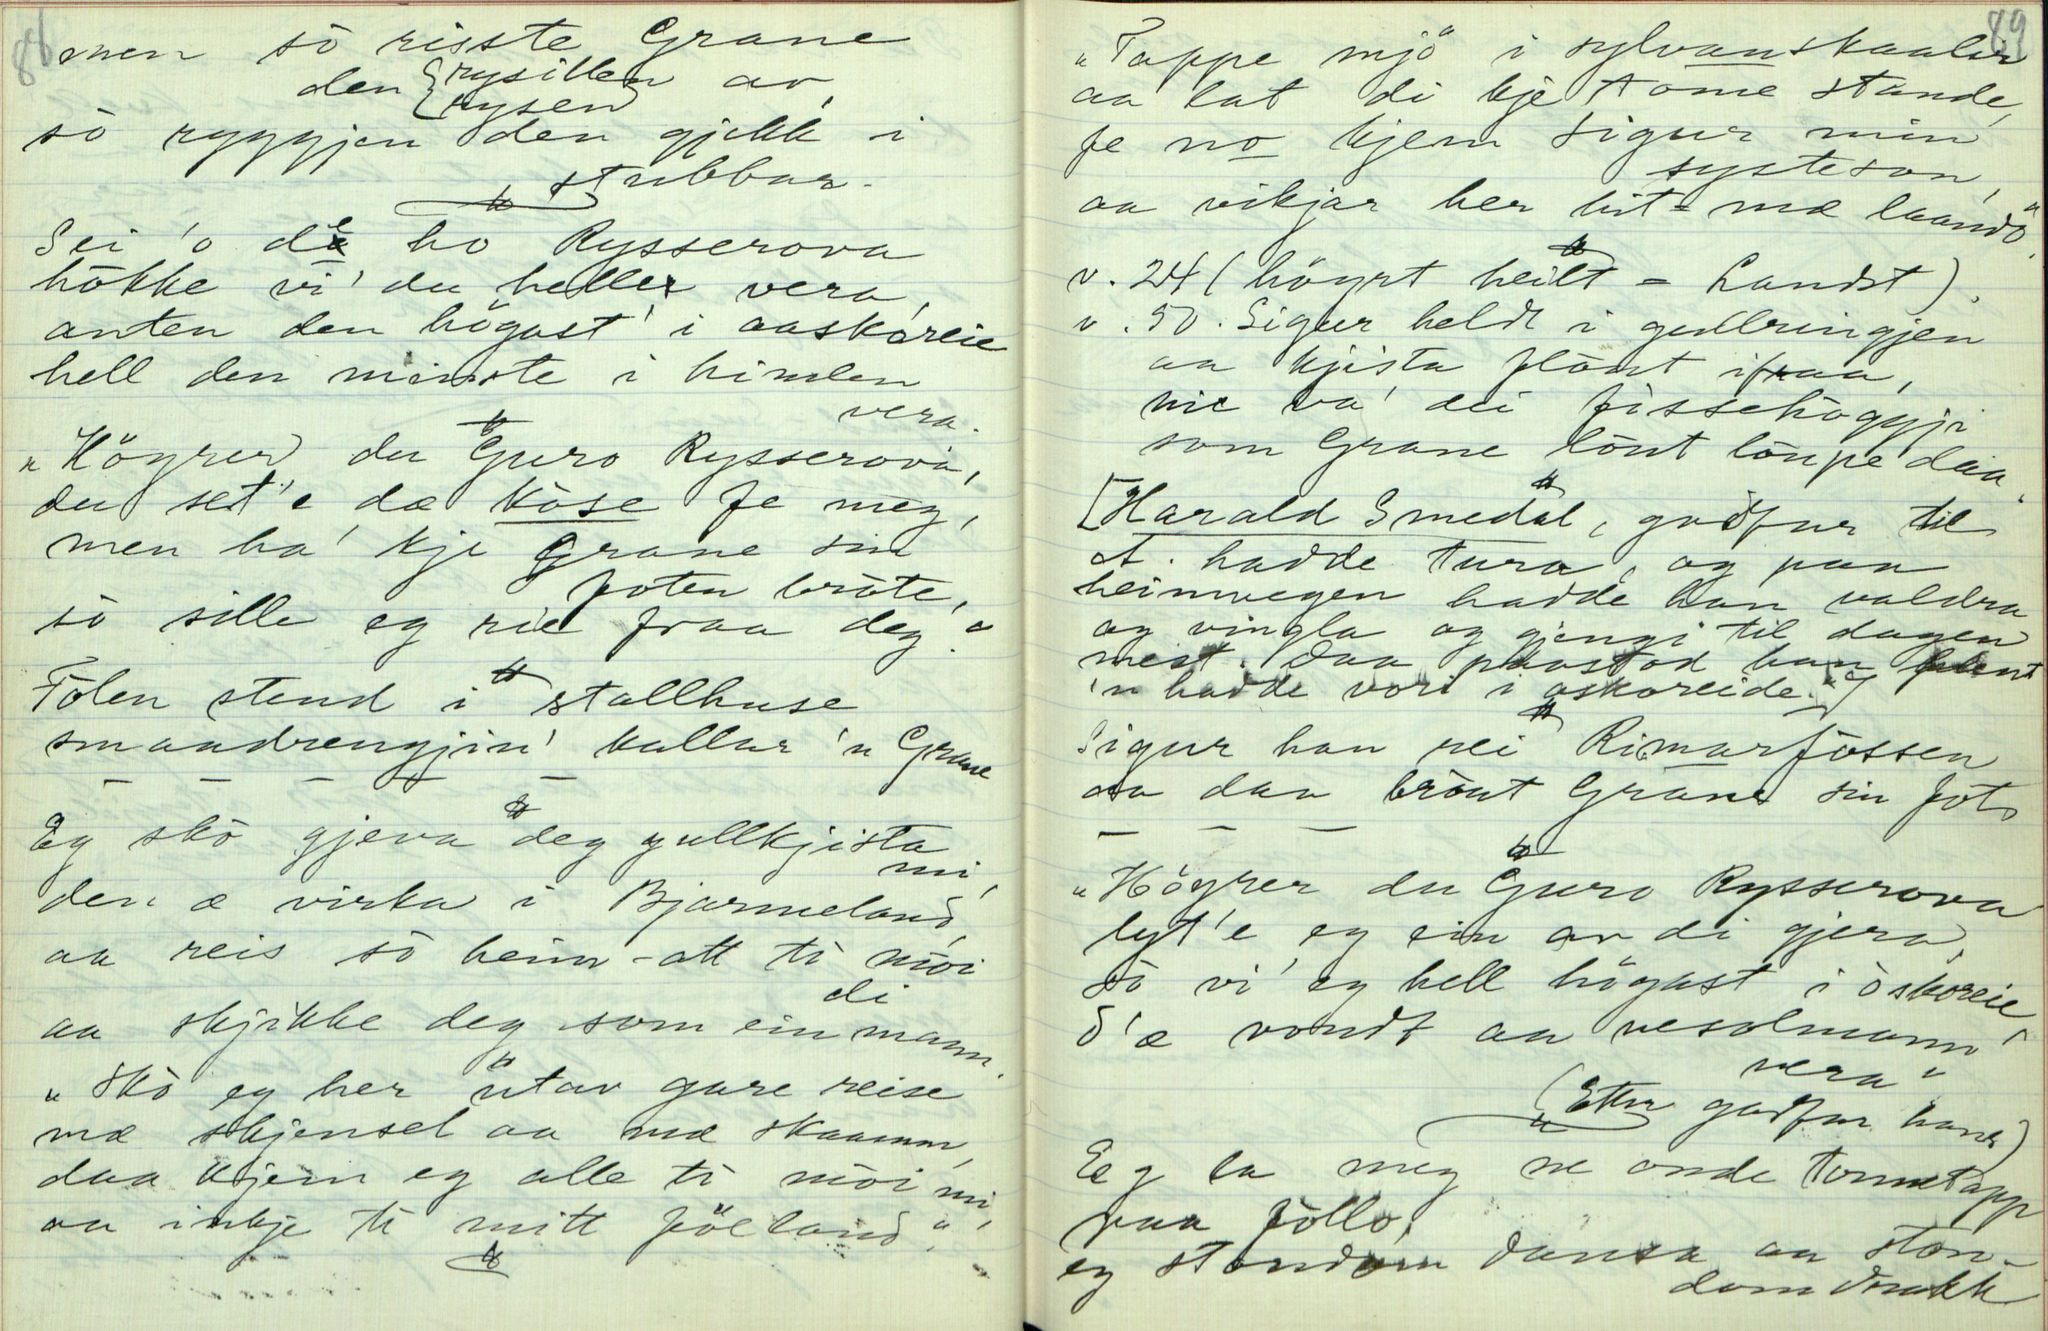 88
men sò risste Grane
den { rysillen av,
{ rysen }
sò ryggjen den gjekk i
stubbar.
Sei 'o dæ ho Rysserova
hòkke vi' du heller vera,
anten den högast' i aaskòreie
hell den minste i himlen
vera.
"Höyrer du Guro Rysserova,
du set'e dæ kòse fe meg,
men ha' kje Grane sin
foten bròte,
sò sille eg rie fraa deg."
Folen stend i stallhuse
smaadrengjin' kallar 'n Grane
— — — — —
Eg skò gjeva deg gullkjista
mi,
den æ virka i Bjarmeland,
aa reis sò heim-att ti mòi
di
aa skjikke deg som ein mann.
"Skò eg her utav gare reise
mæ skjensel aa mæ skaamm,
daa kjem eg alle ti mòi mi,
aa inkje ti mitt föeland".
89
"Tappe mjö i sylvanskaalir
aa lat di kje tome stande,
fe no kjem Sigur min
systeson,
aa vikjar her hit-mæ laandö".
v. 24 (höyrt heilt = Landst).
v. 50. Sigur heldt i gullringjen
aa kjista flòut ifraa,
nie va' dei fòssehöggji
som Grane lòut löupe daa.
[Harald Smedal, godfar til
A. hadde tura, og paa
heimvegen hadde han valdra
og vingla og gjengi til dagen
mest. Daa paastod han
'n hadde vori i oskoreide.]
Sigur han rei Rimarfòssen
aa daa bròut Grane sin fot
— — —
"Höyrer du Guro Rysserova
lyt'e eg ein av di gjera,
sò vi' eg hell högast i òskoreie,
d'æ vondt aa vesolmann
vera"
(Etter godfar hans)
Eg la meg ne onde tonnetapp
paa föllo,
eg stondom dansa aa ston-
dom drakk